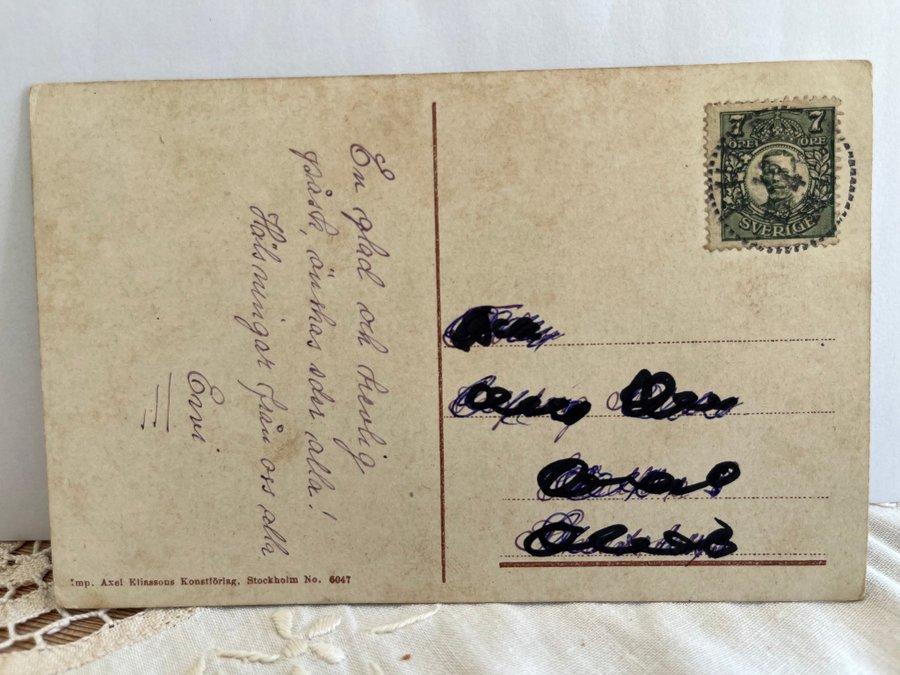 En glad och trevlig
påsk, önskas eder alla!
Hälsningar från oss alla
Imp. Axel Eliassons Konstförlag, Stockholm No. 6047
7 7
ÖRE ÖRE
SVERIGE